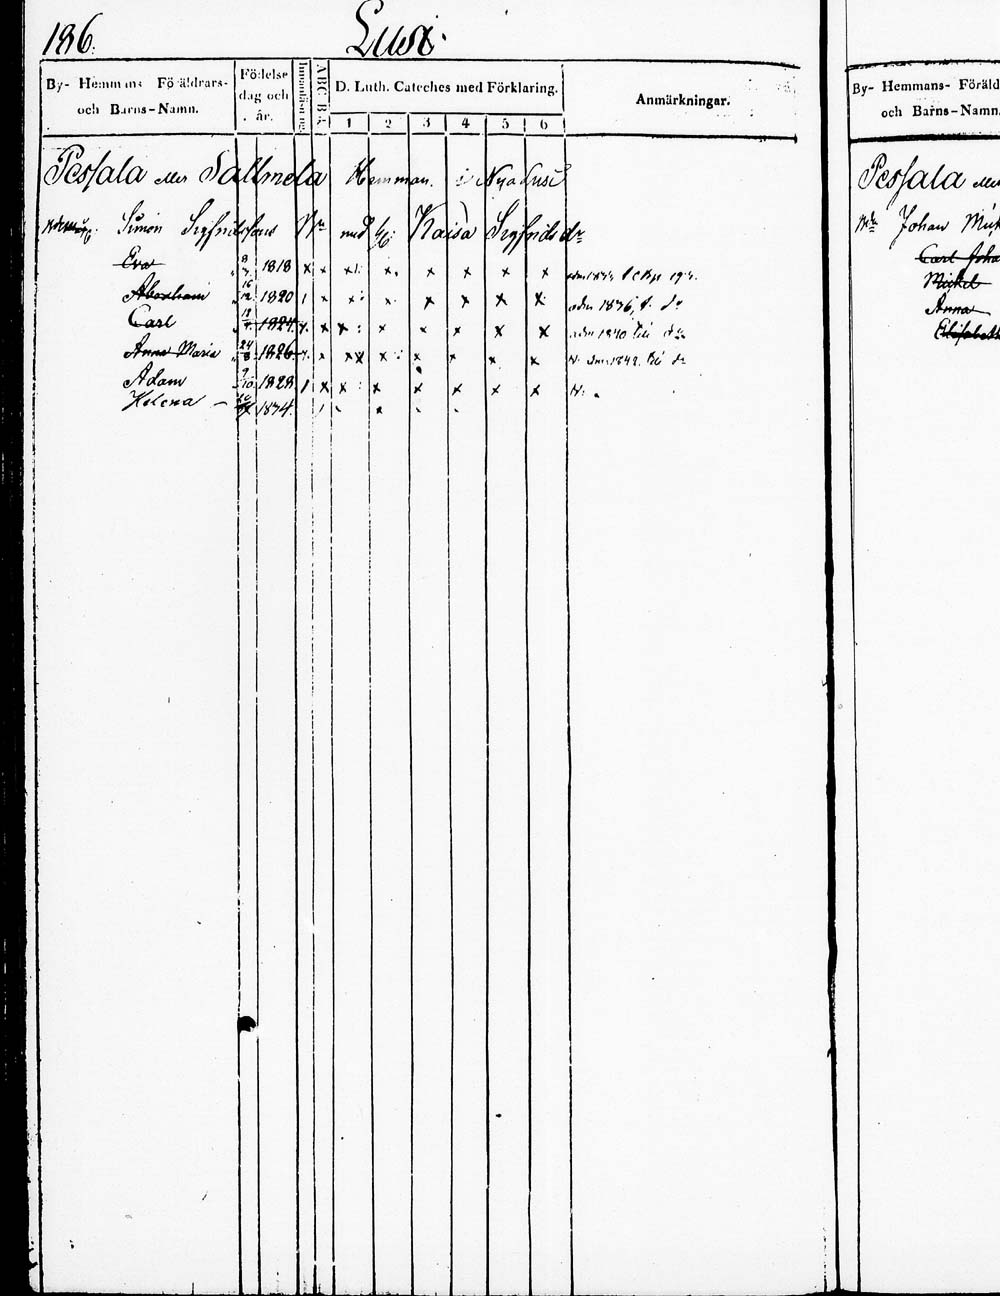 186.
Lusi.
By- Hemmans Föräldrars- och Barns-Namn.
Födelse dag och år.
Innanläsning
A B C B:k
D. Luth. Cateches med Förklaring.
1 2 3 4 5 6
Anmärkningar.
Pessala eller Sallmela Hemman i Nya Lusi
Simon Sigfridssons med Kaisa Sigfrids dr
Eva 8/7 1818 x x x x x x x x
Abraham 16/12 1820 x x x x x x x adm 1836, d:o
Carl 1824 x x x x x x x adm 1840 d:o
Anna Maria 24/8 1826 x x x x x x x adm 1842 d:o
Adam 9/10 1828 x x x x x x x
Helena 1834
By- Hemmans- Föräld
och Barns-Namn.
Pessala eller
Johan Mick
Carl Joha
Mickel
Anna
Elisabeth